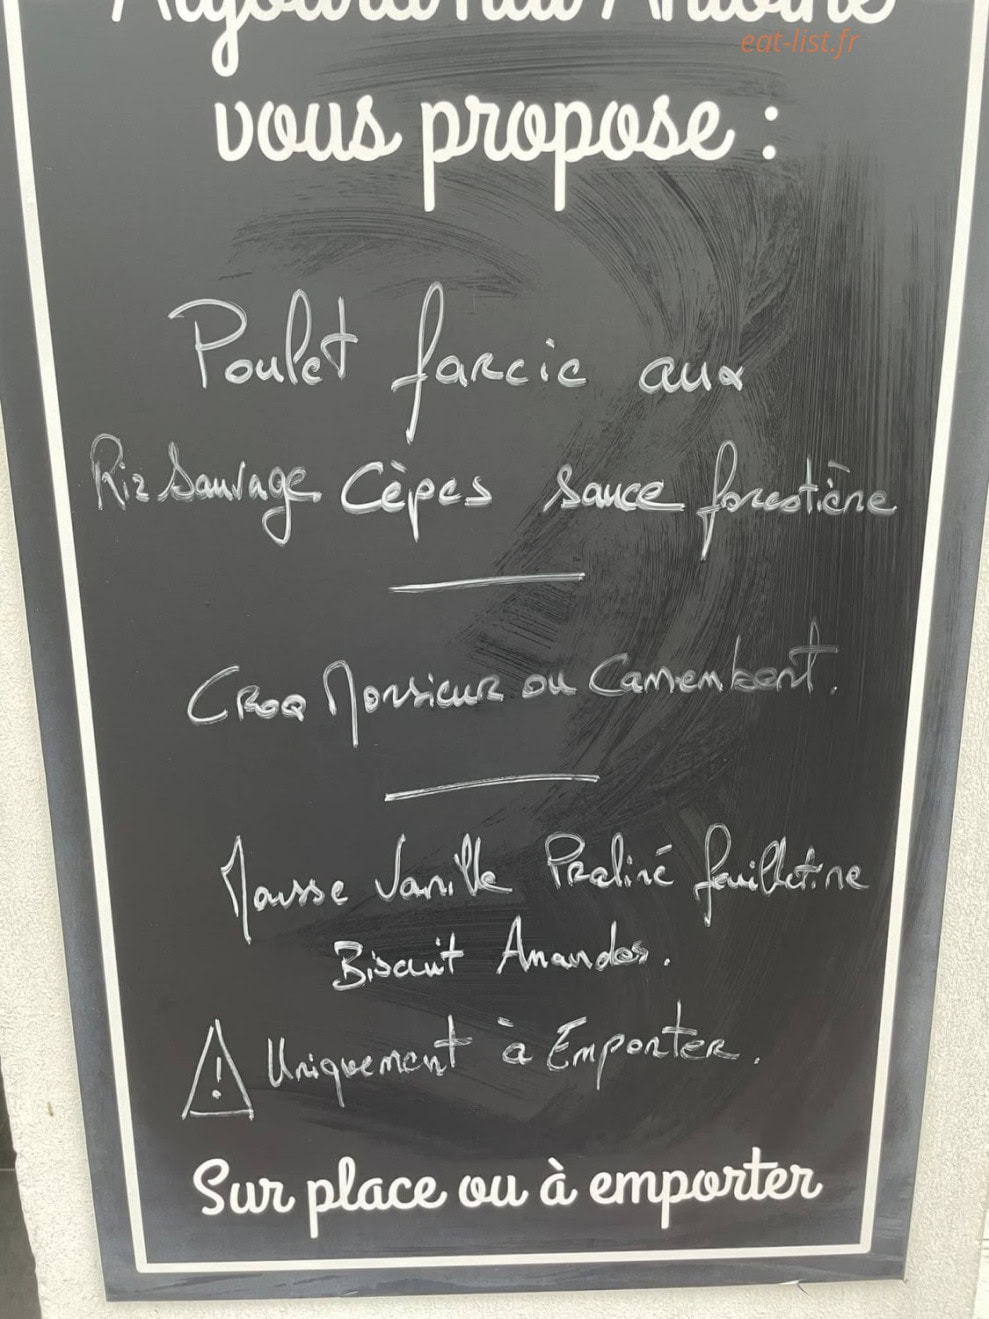 Aujourd'hui Antoine
eat-list.fr
vous propose :
Poulet farcie aux
Riz Sauvage Cèpes sauce forestière
Croq Monsieur ou Camembert.
Mousse Vanille Praliné feuilletine
Biscuit Amandes.
Uniquement à Emporter.
Sur place ou à emporter